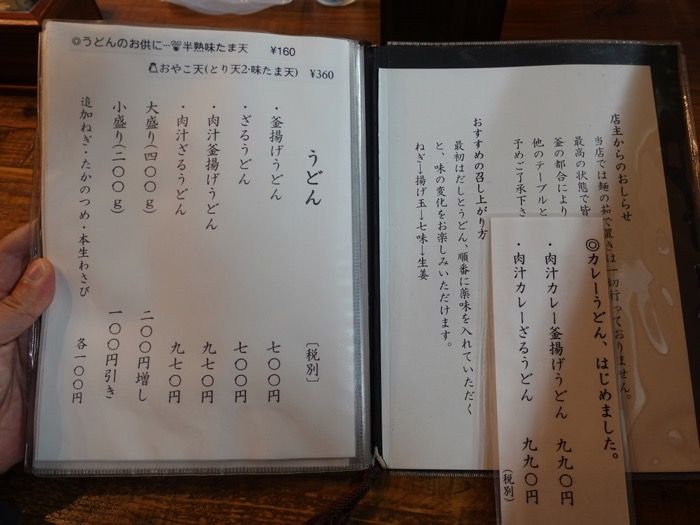 ◎うどんのお供に…半熟味たま天 ¥160
おやこ天(とり天2・味たま天) ¥360
うどん 〔税別〕
・釜揚げうどん 七〇〇円
・ざるうどん 七〇〇円
・肉汁釜揚げうどん 九七〇円
・肉汁ざるうどん 九七〇円
大盛り(四〇〇g) 二〇〇円増し
小盛り(二〇〇g) 一〇〇円引き
追加ねぎ・たかのつめ・本生わさび 各一〇〇円
店主からのおしらせ
当店では麺の茹で置きは一切行っておりません。
最高の状態で皆
釜の都合により
他のテーブルと
予めご了承下さ
おすすめの召し上がり方
最初はだしとうどん、順番に薬味を入れていただく
と、味の変化をお楽しみいただけます。
ねぎ→揚げ玉→七味→生姜
◎カレーうどん、はじめました。
・肉汁カレー釜揚げうどん 九九〇円
・肉汁カレーざるうどん 九九〇円
(税別)